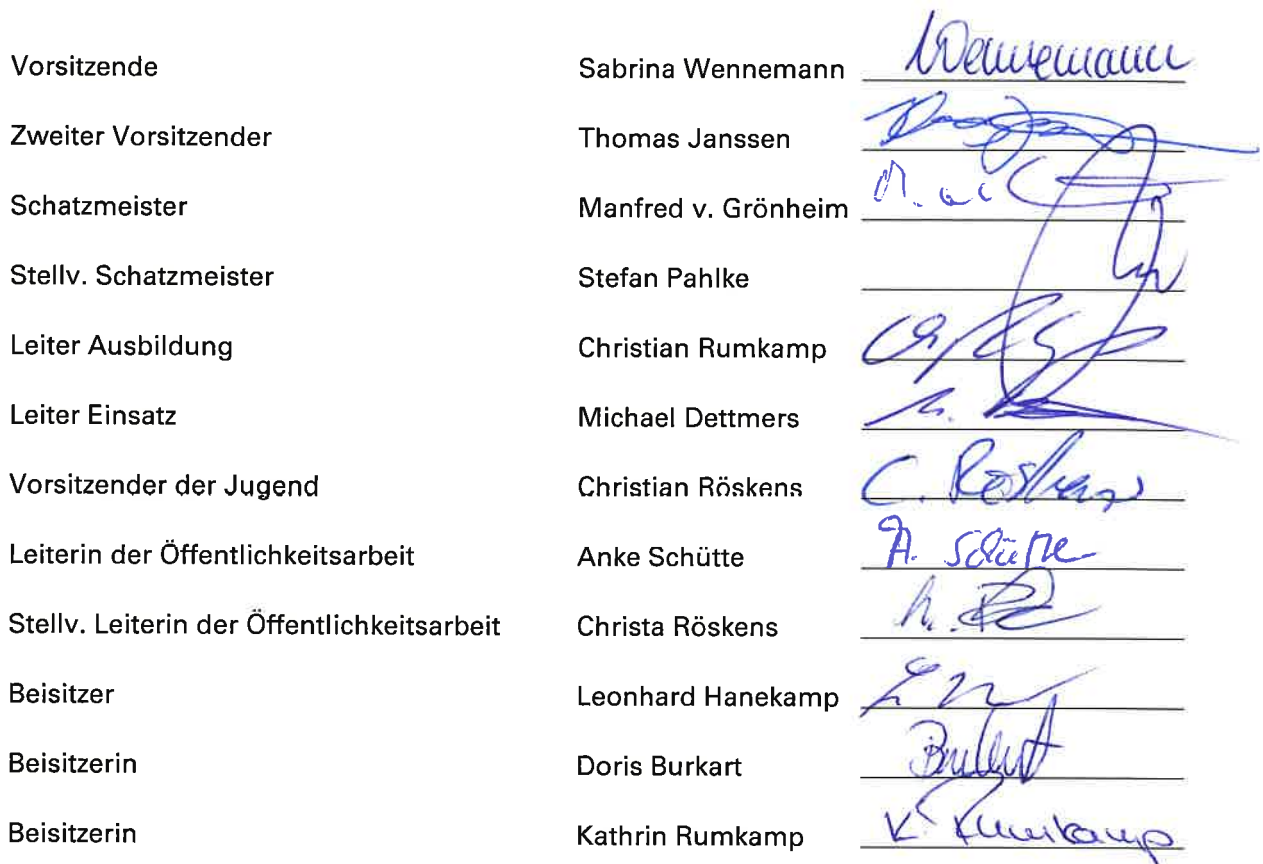 Vorsitzende Sabrina Wennemann Wennemann
Zweiter Vorsitzender Thomas Janssen
Schatzmeister Manfred v. Grönheim
Stellv. Schatzmeister Stefan Pahlke
Leiter Ausbildung Christian Rumkamp
Leiter Einsatz Michael Dettmers
Vorsitzender der Jugend Christian Röskens C. Röskens
Leiterin der Öffentlichkeitsarbeit Anke Schütte A. Schütte
Stellv. Leiterin der Öffentlichkeitsarbeit Christa Röskens
Beisitzer Leonhard Hanekamp
Beisitzerin Doris Burkart Burkart
Beisitzerin Kathrin Rumkamp K. Rumkamp